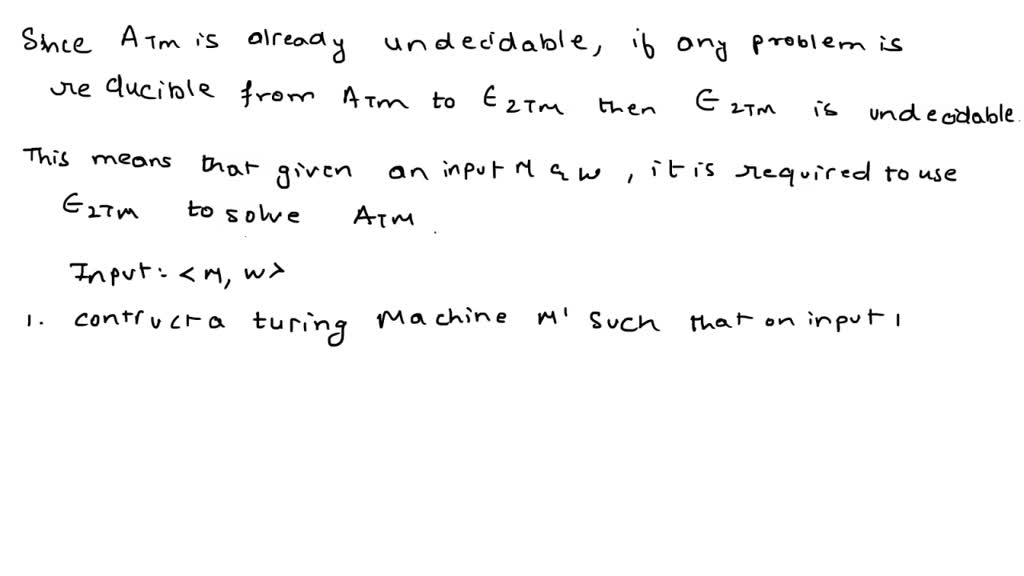 Since ATM is already undecidable, if any problem is
reducible from ATM to E2TM then E2TM is undecidable.
This means that given an input M & w, it is required to use
E2TM to solve ATM.
Input: <M, w>
1. contruct a turing Machine M' such that on input